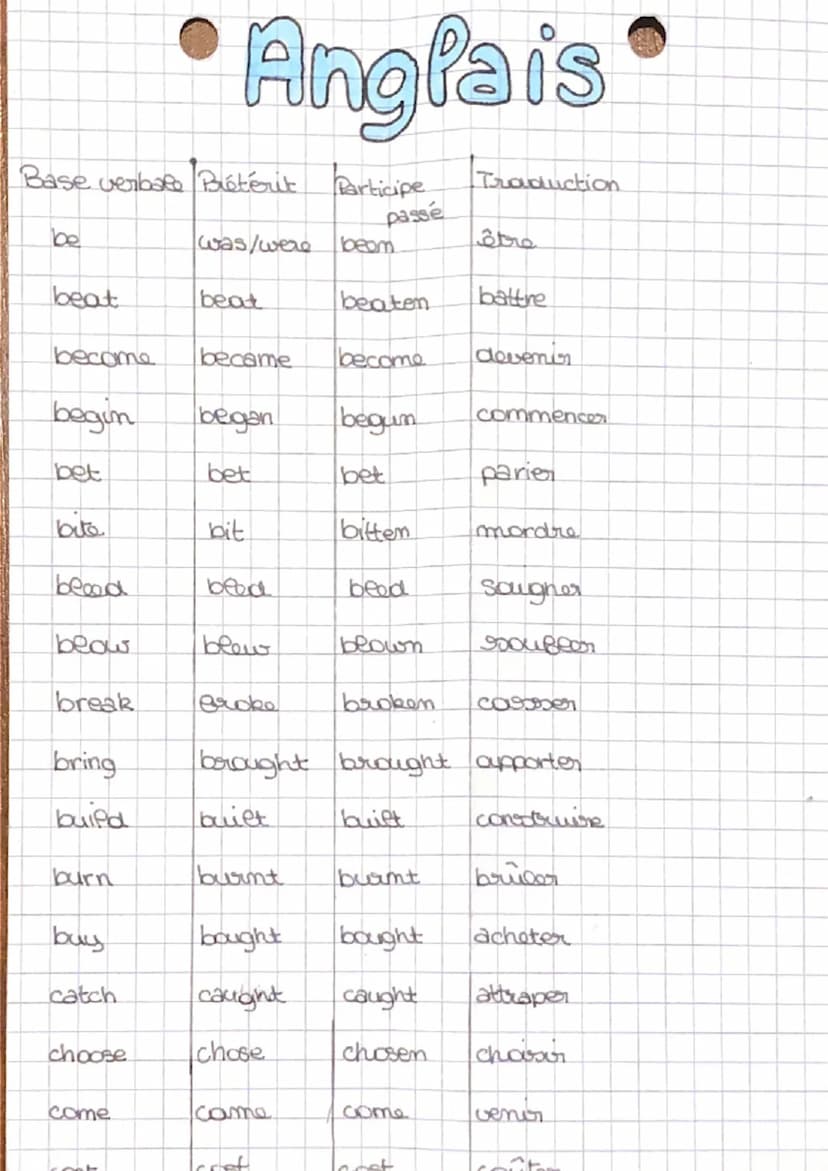 Anglais
Base verbale Prétérit Participe passé Traduction
be was/were been être
beat beat beaten battre
become became become devenir
begin began begun commencer
bet bet bet parier
bite bit bitten mordre
bleed bled bled saigner
blow blew blown souffler
break broke broken casser
bring brought brought apporter
build built built construire
burn burnt burnt brûler
buy bought bought acheter
catch caught caught attraper
choose chose chosen choisir
come came come venir